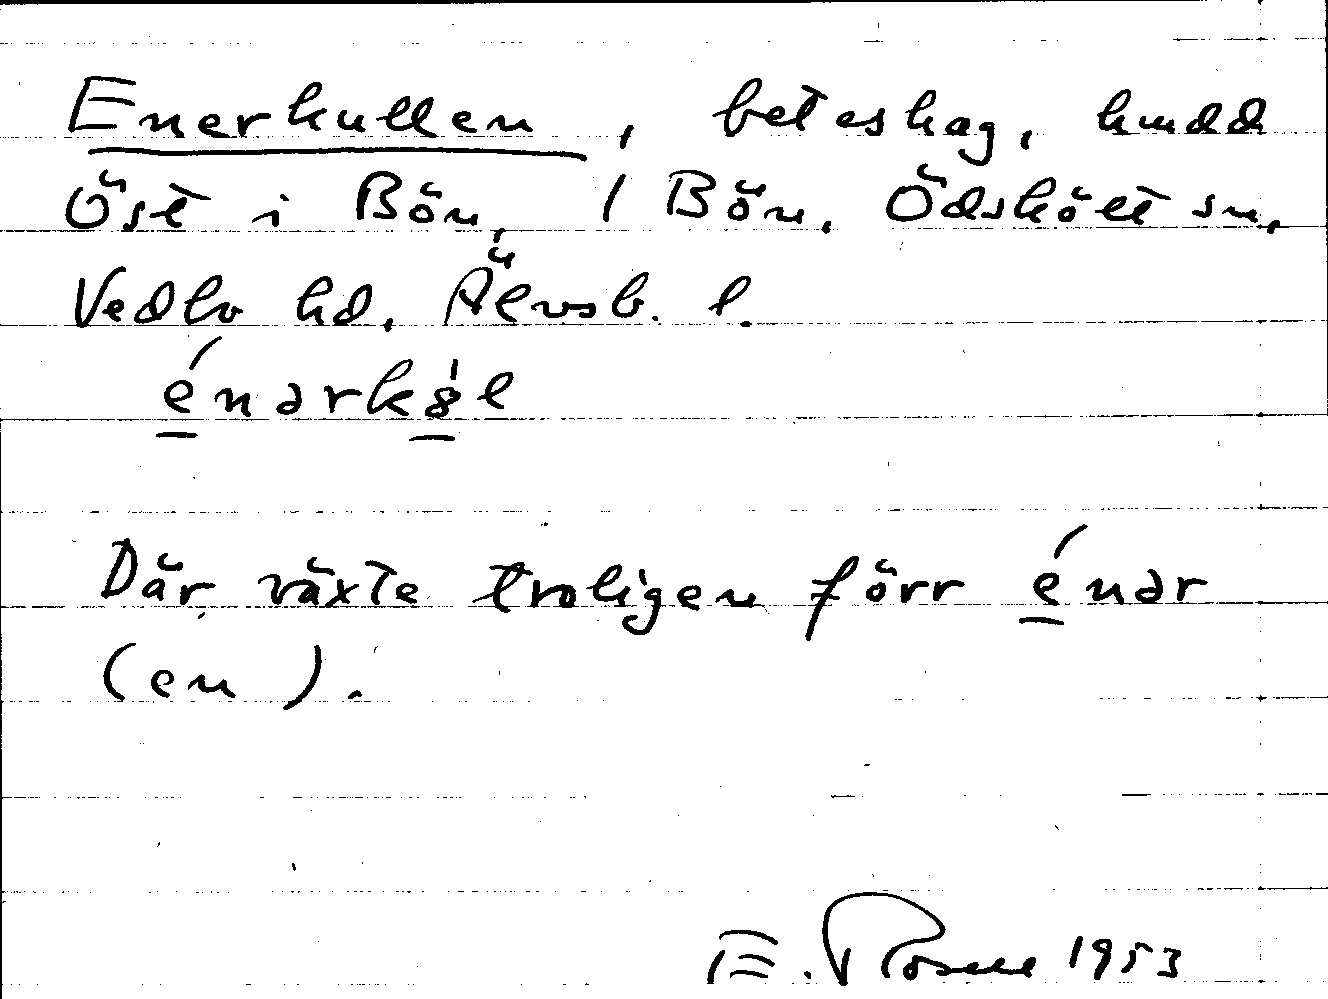 Enerkullen, beteshag, kudd
Öst i Bön, 1 Bön, Ödskölt sn,
Vedbo hd, Älvsb. l.
énərk8l
Där växte troligen förr énər
(en).
E. 1953